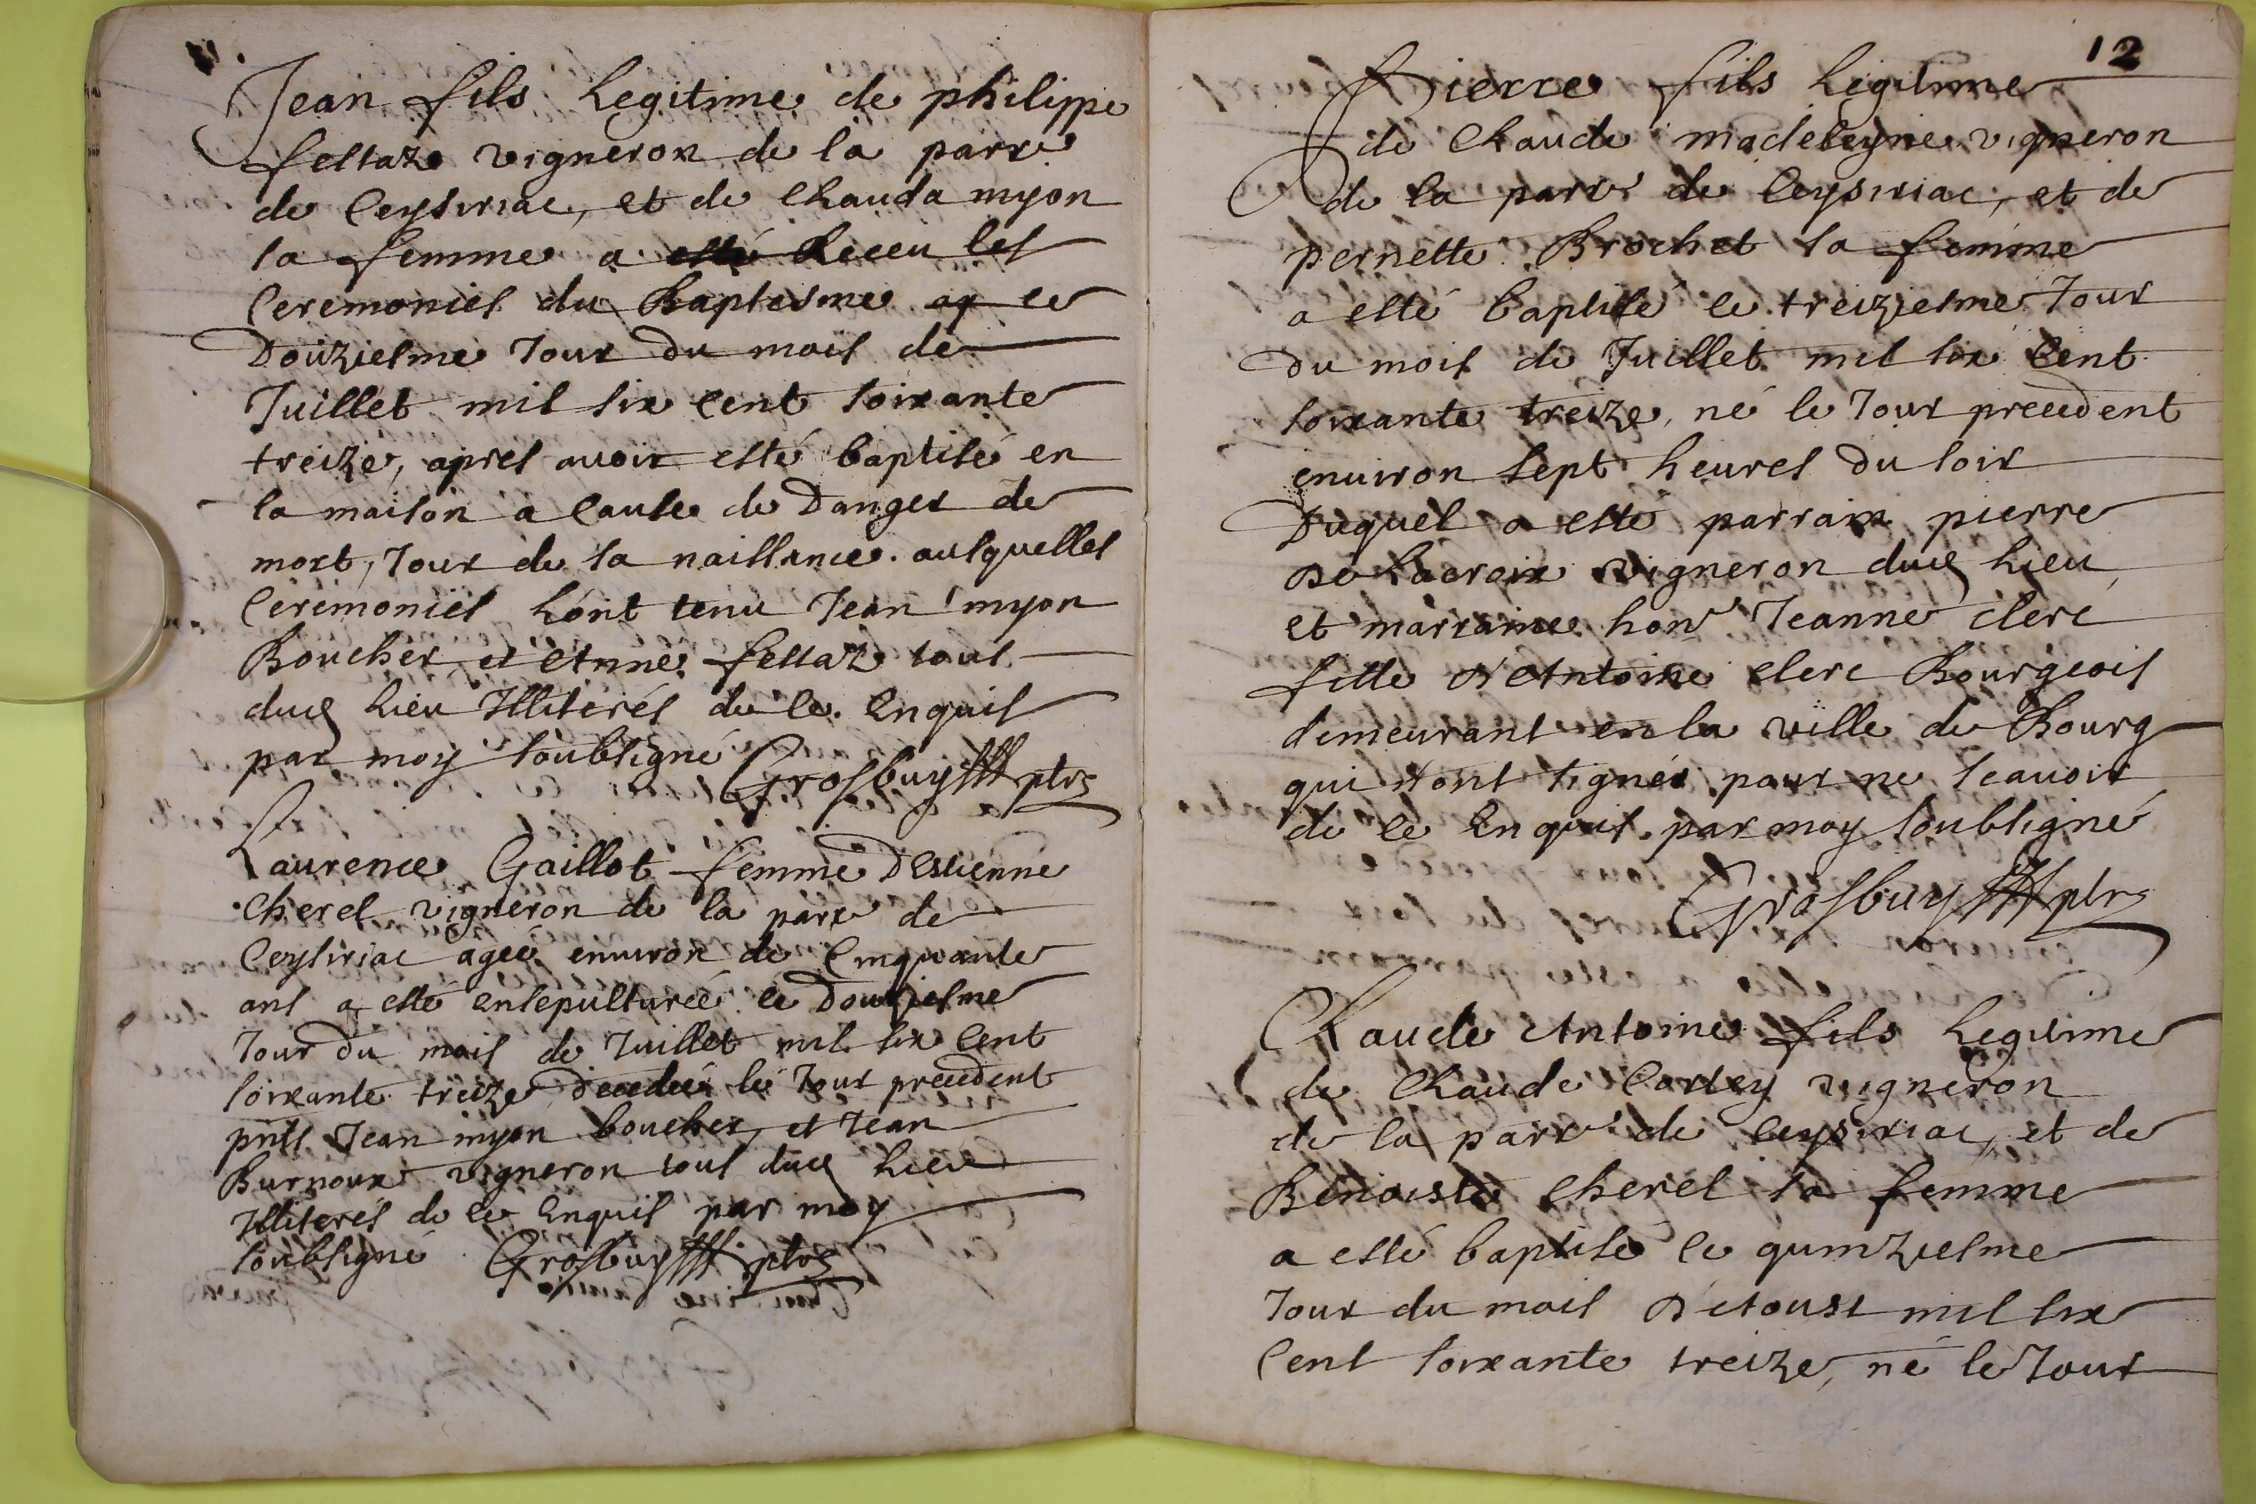 Jean fils Legitime de philippe
fellaz vigneron de la parre
de Ceysiriac, et de Clauda myon
sa femme a esté Receu les
Ceremonies du Baptesme le
Douziesme Jour du mois de
Juillet mil six Cent soixante
treize, apres avoir esté baptisé en
la maison a Cause de Danger de
mort, Jour de sa naissance. ausquelles
Ceremonies Lont tenu Jean myon
Boucher et Anne fellaz tous
dud Lieu Illiterés de ce Enquis
par moy soubsigné
Grosbuy ptre
Laurence Gaillot femme Destienne
Cherel vigneron de la parre de
Ceysiriac agée environ de Cinquante
ans a esté ensepulturée le Douziesme
Jour du mois de Juillet mil six Cent
soixante treize decedée le Jour precedent
pnts Jean myon boucher, et Jean
Burnoux vigneron tous dud Lieu
Illiterés de ce Enquis par moy
soubsigné Grosbuy ptre
12
Pierre fils Legitime
de Claude madeleyne vigneron
de la parre de Ceysiriac, et de
pernette Brochet sa femme
a esté baptisé le treiziesme Jour
du mois de Juillet mil six Cent
soixante treize, né le Jour precedent
environ sept heures du soir
Duquel a esté parrain pierre
De Lacroix vigneron dud Lieu,
et marraine hon Jeanne clerc
fille D'Antoine clerc Bourgeois
demeurant en la ville de Bourg
qui n'ont signés pour ne scavoir
de ce Enquis par moy soubsigné
Grosbuy ptre
Claude Antoine fils Legitime
de Claude Carley vigneron
de la parre de Ceysiriac, et de
Benoiste Cherel sa femme
a esté baptisé le quinziesme
Jour du mois D'Aoust mil six
Cent soixante treize, né le Jour